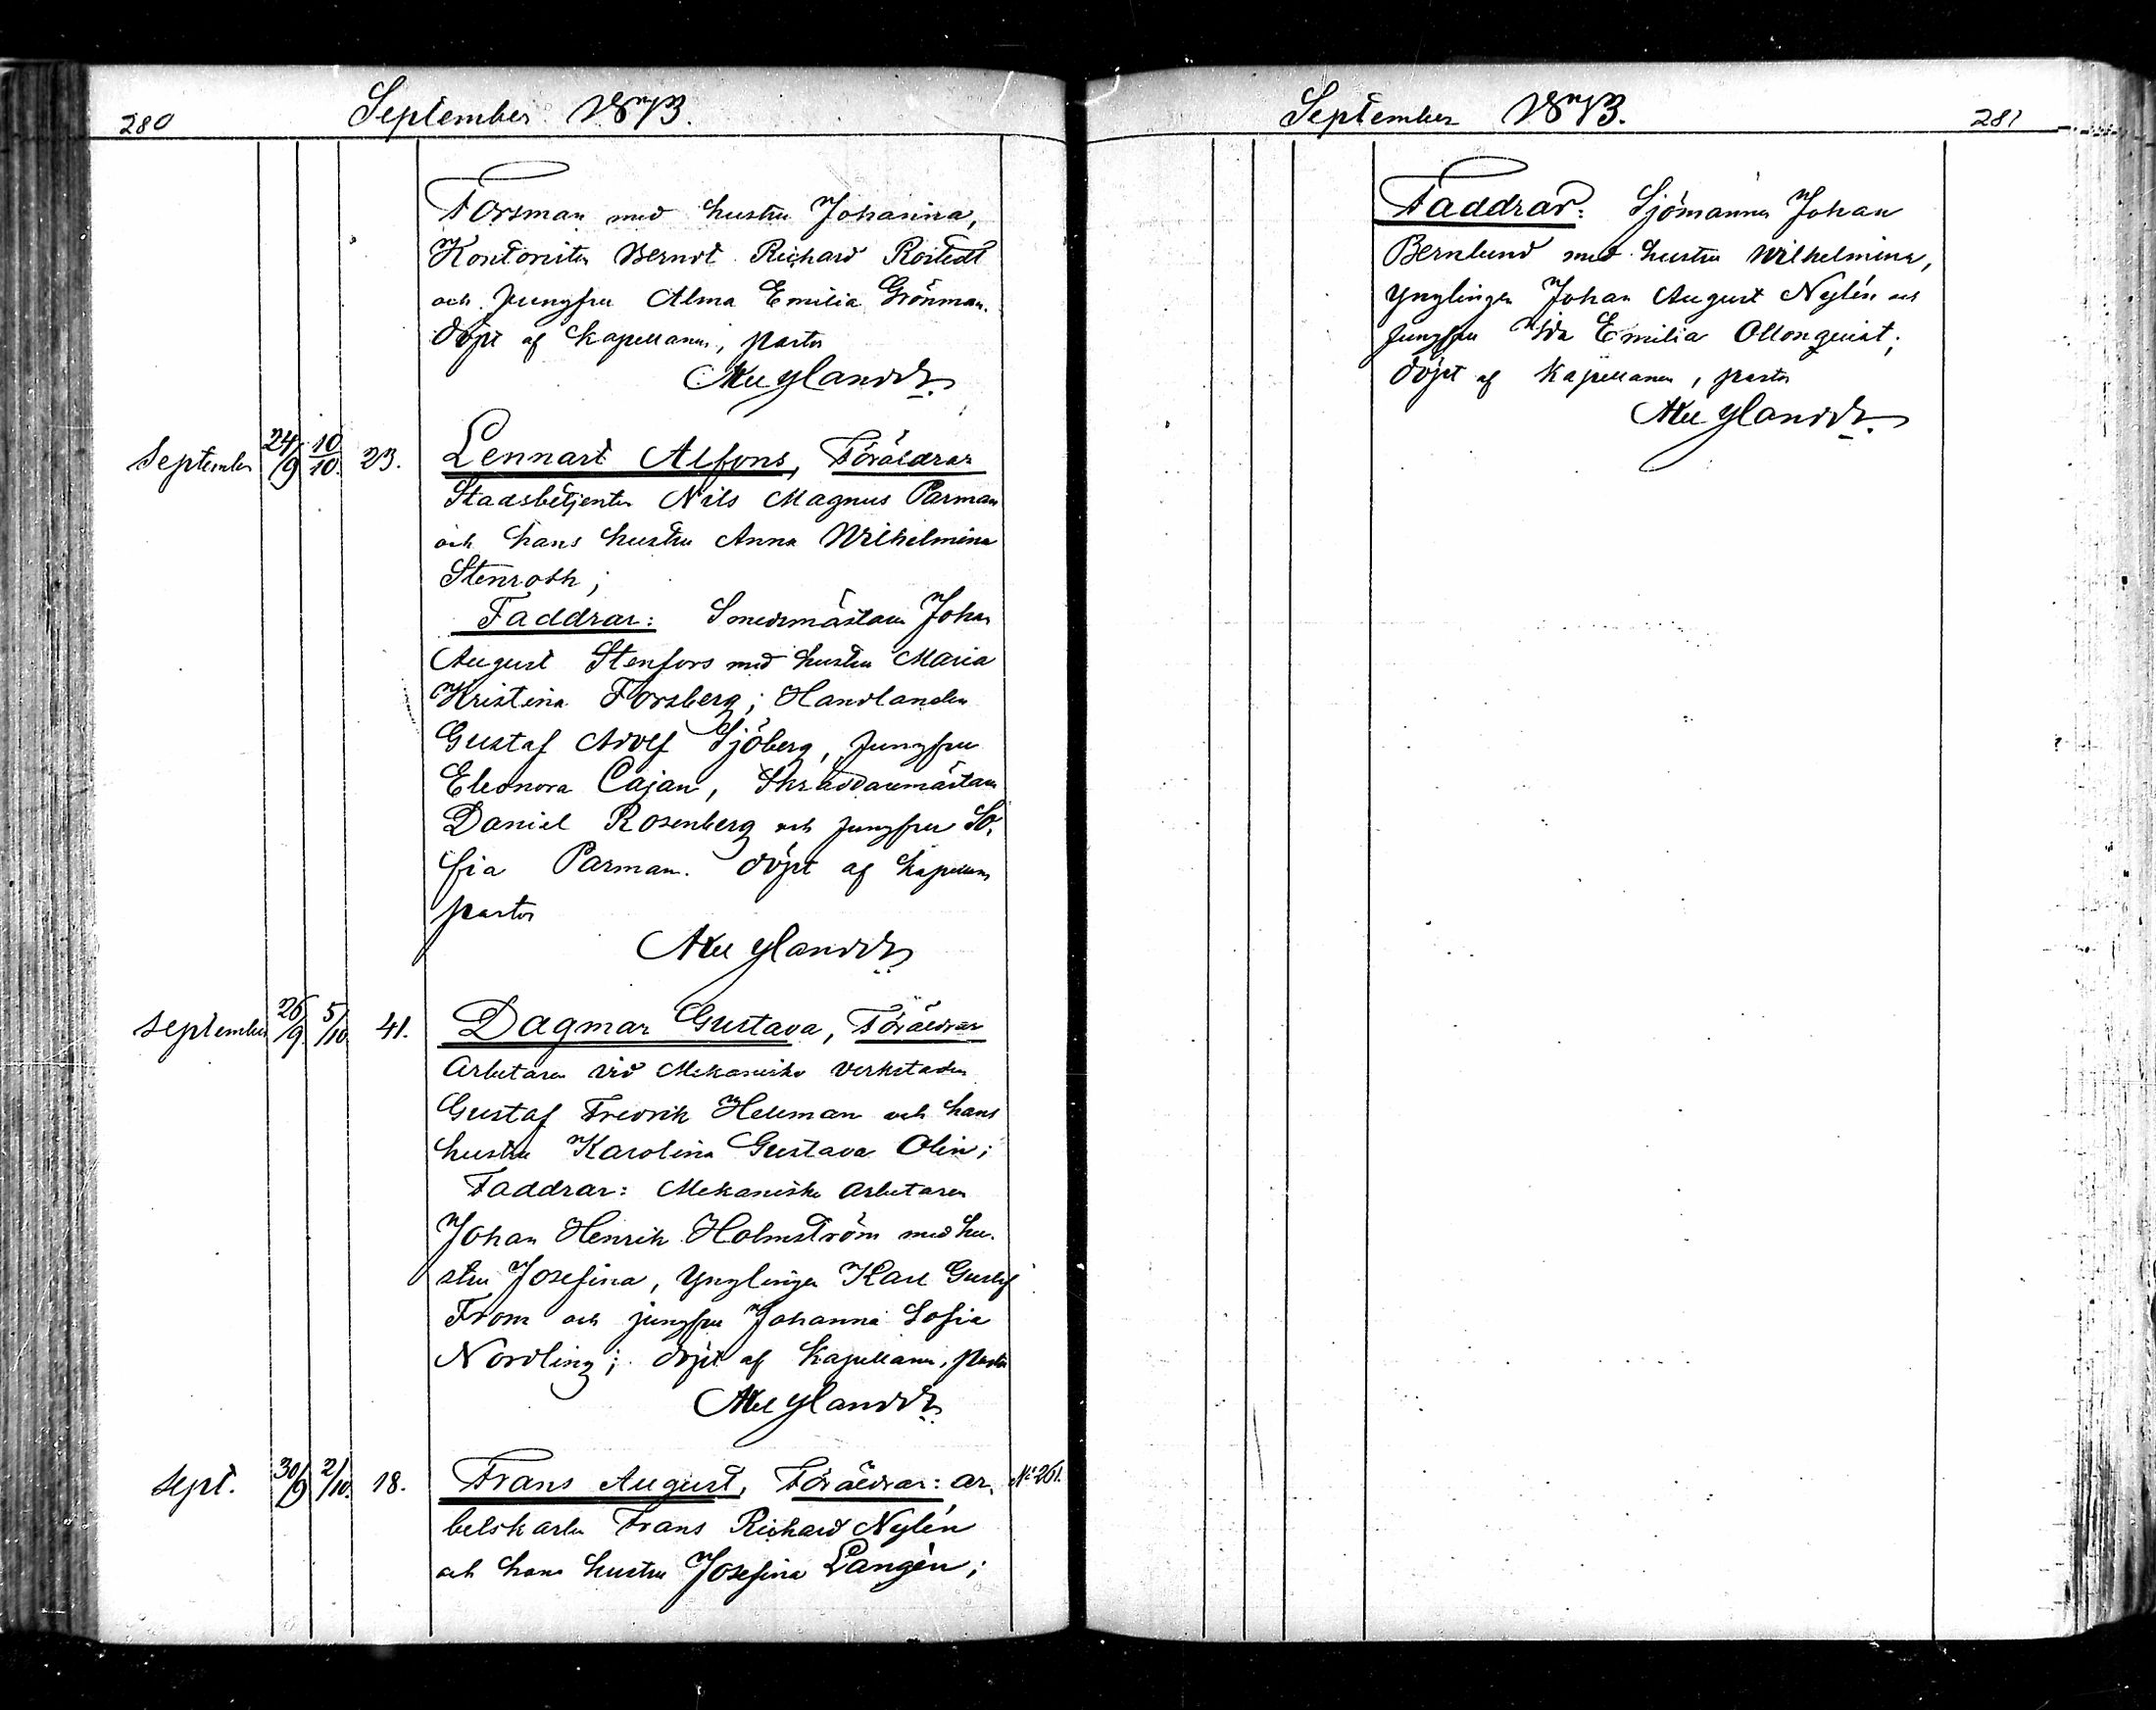 280 September 1873.
Forsman med hustru Johanna,
Kontoristen Berndt Richard Rostedt
och Jungfru Alma Emilia Grönman.
döpt af Kapellanen, pastor
September 24/9 10/10. 23. Lennart Alfons, Föräldrar
Stadsbetjenten Nils Magnus Parman
och hans hustru Anna Wilhelmina
Stenroth;
Faddrar: Smedmästaren Johan
August Stenfors med hustru Maria
Kristina Forsberg; Handlanden
Gustaf Adolf Sjöberg, Jungfru
Eleonora Cajan, Skräddaremästaren
Daniel Rosenberg och jungfru So-
fia Parman. döpt af Kapellanen
pastor
September 26/9. 5/10. 41. Dagmar Gustava, Föräldrar
Arbetaren vid Mekaniska verkstaden
Gustaf Fredrik Hellman och hans
hustru Karolina Gustava Olin;
Faddrar: Mekaniske Arbetaren
Johan Henrik Holmström med hu-
stru Josefina, Ynglingen Karl Gustaf
From och jungfru Johanna Sofia
Nordling; döpt af Kapellanen, Pastor
Sept. 30/9 2/10. 18. Frans August, Föräldrar: ar- No 261.
betskarlen Frans Richard Nylén
och hans hustru Josefina Langén;
September 1873. 281
Faddrar: Sjömannen Johan
Bernlund med hustru Wilhelmina,
Ynglingen Johan August Nylén och
Jungfru Ida Emilia Ollonquist;
döpt af Kapellanen, pastor